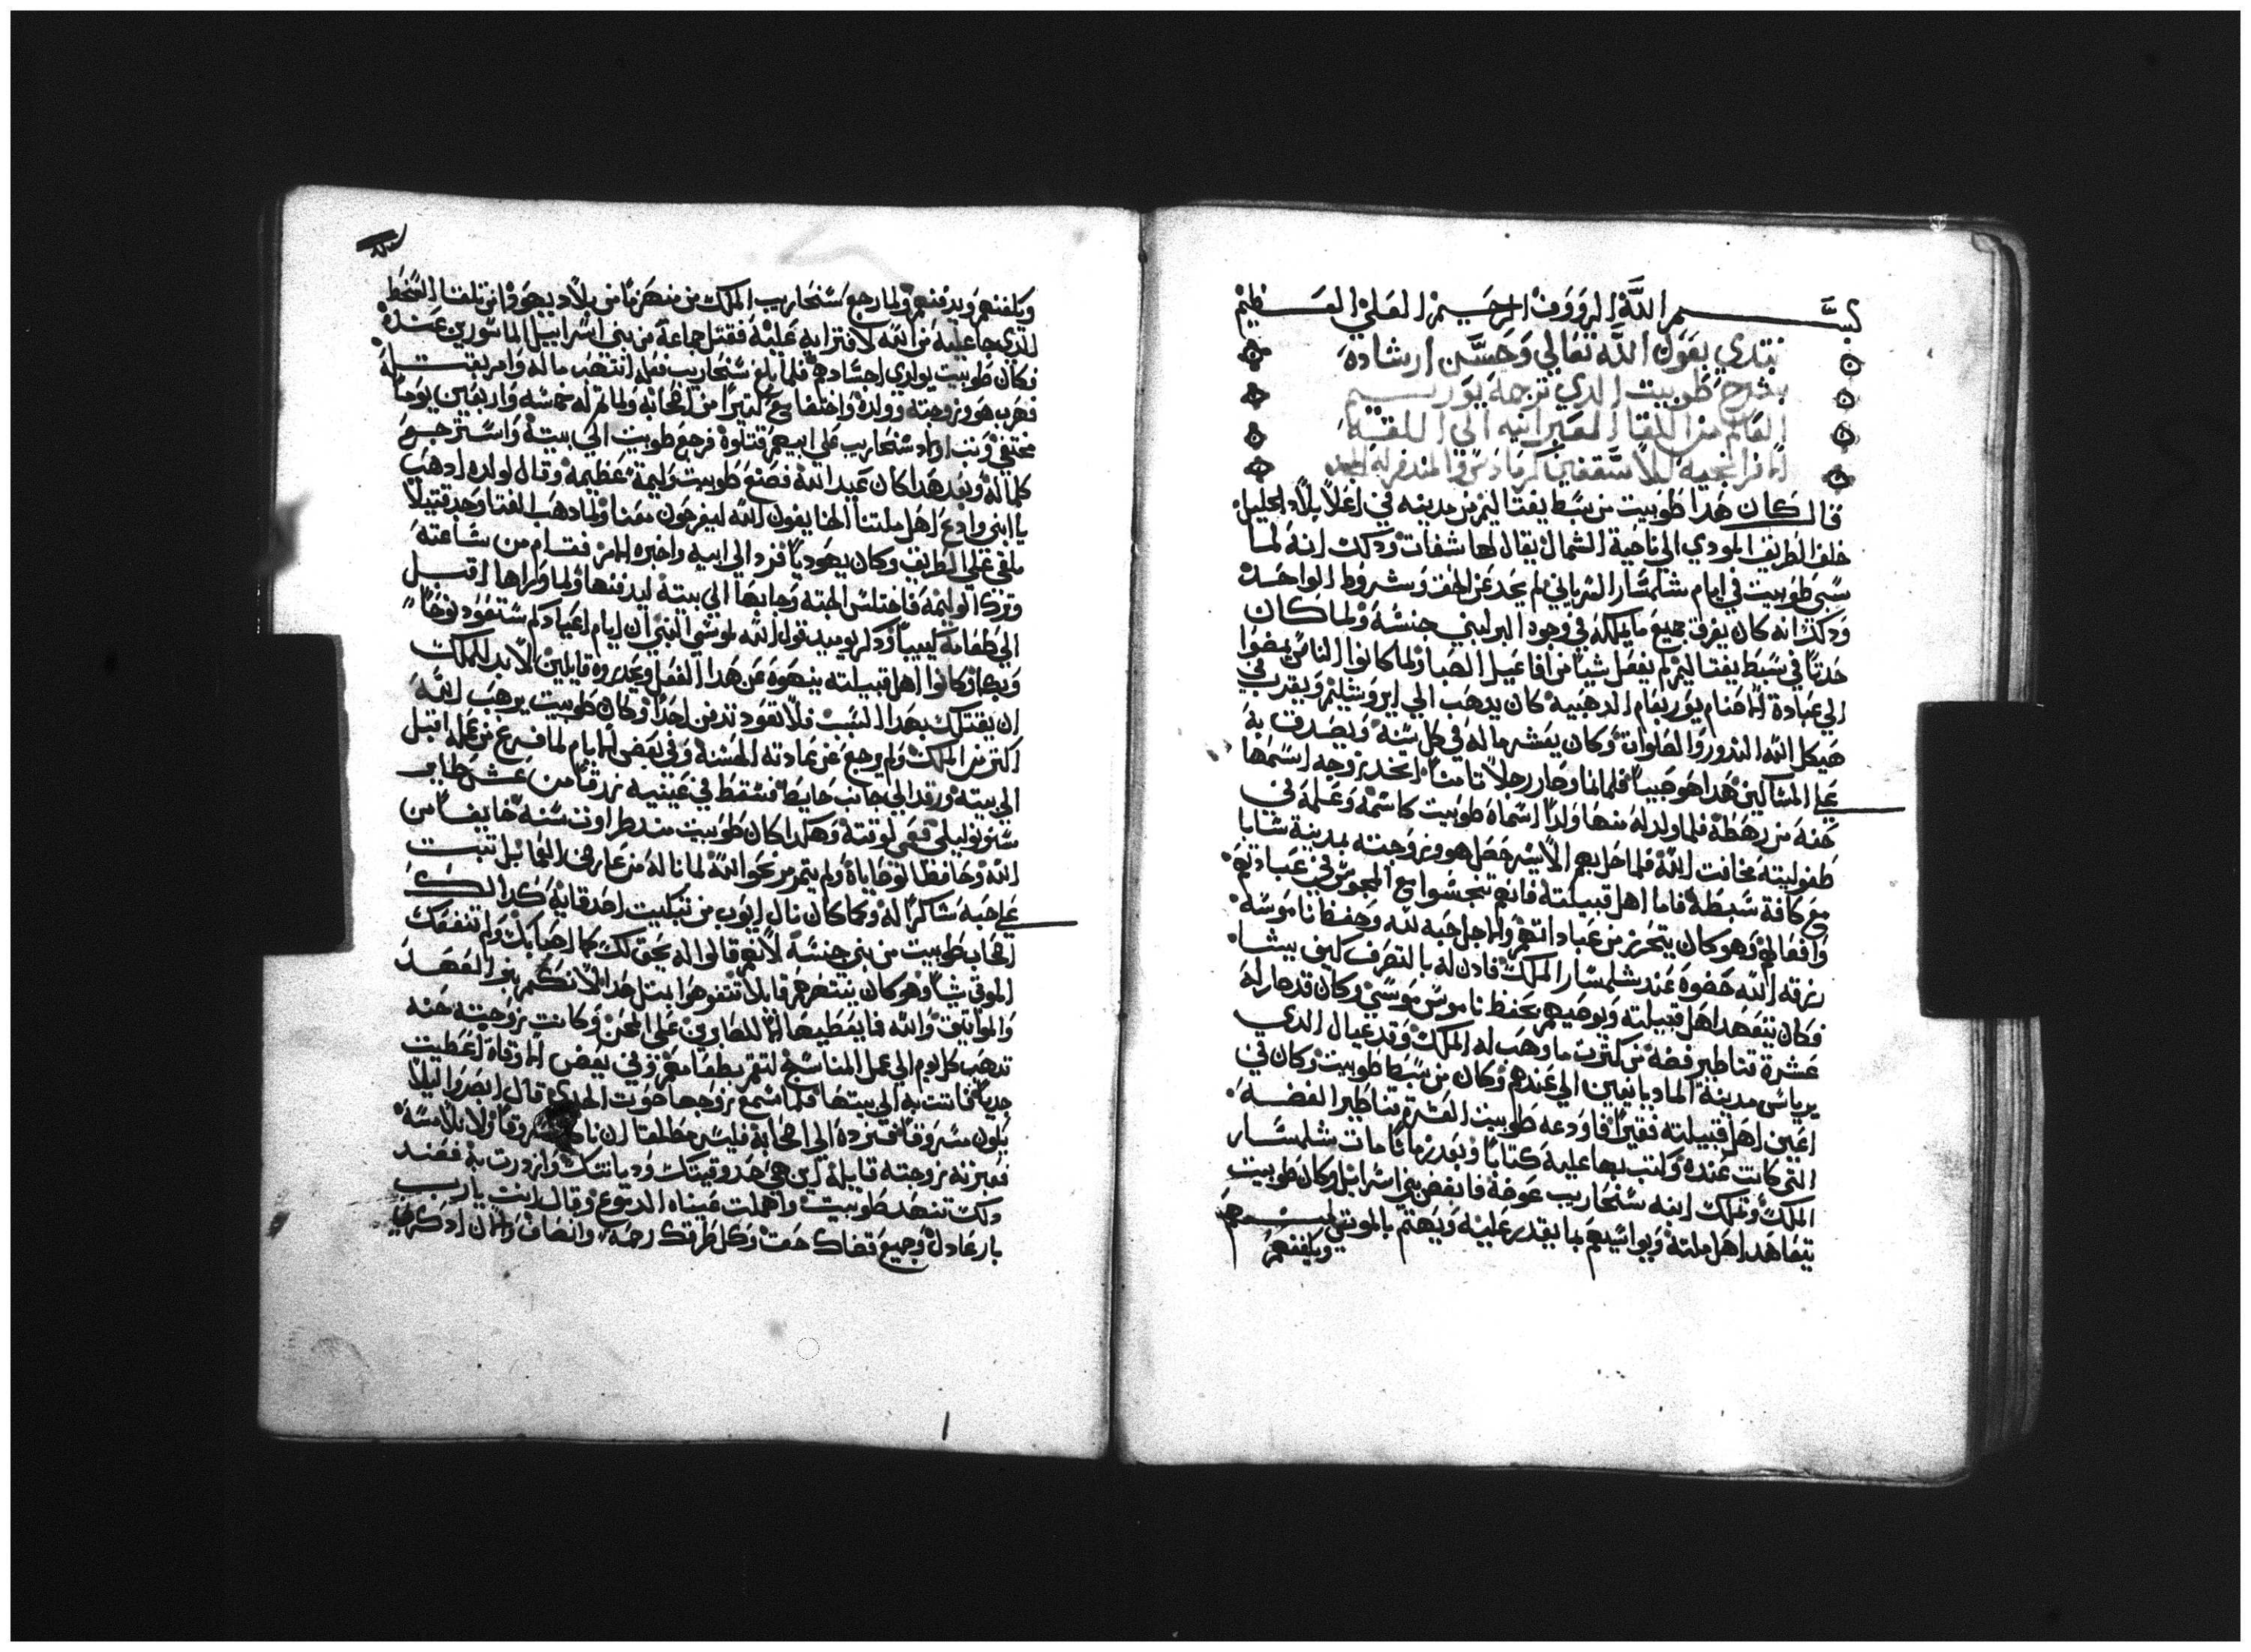 بسم الله الرووف الرحيم العلي العظيم
نبتدي بعون الله تعالي وحسن ارشاده
بشرح طوبيت الدي ترجمه يورنيم
العالم من اللغا العبرانيه الي اللغة
الافرانجيه للاسقفين
قال كان هدا طوبيت من سبط يفتاليم من مدينه في اعلا بلاد الجليل
خلف الطريف المودي الي ناحية الشمال يقال لها شفات ودكك انه لما
سبي طوبيت في ايام شلمنسار السرياني لم يحد عن الحف وشروط الواحده
ودكك انه كان يفرق جميع ما يملكه في وجوه البر لبني جنسه ولما كان
حدتا في سبط يفتاليم لم يفعل شيا من افاعيل الصبا ولما كانوا الناس يمضوا
الي عبادة الاصنام يوربعام الدهبيه كان يدهب الي ايروشليم ويقرب في
هيكل الله الندور والصلوات وكان يعشر ماله في كل سنه ويصدف به
علي المساكين هدا هو صبيا فلما نما وصار رجلا تامتا اتخد زوجه اسمها
حنه من رهطه فلما ولد له منها ولدا اسماه طوبيت كاسمه وعلمه في
طفوليته مخافت الله فلما حل بهم الاسر حصل هو وزوجته بمدينة
مع كافة سبطه فاما اهل قبيلته فانهم تنجسوا مع المجوس في عباداتهم
وافعالهم وهو كان يتحرز من عباداتهم ولاجل حبه لله وحفظ ناموسه
رزقه الله حضوه عند شلمسار الملك فادن له بالتصرف كيف يشا
فكان يتعهد اهل قبيلته ويوصيهم بحفظ ناموس موسي وكان قد صار له
عشرة تناطير فضه من كترت ما وهب له الملك وقد عيال الدي
يرياسي مدينة الماديانيين الي عندهم وكان من سبط طوبيت وكان في
اعين اهل قبيلته فقيرا فاودعه طوبيت العشرة تناطير الفضه
التي كانت عنده وكتب بها عليه كتابا وبعد زمانا مات شلمسار
الملك وتملك ابنه سنحاريب عوضه فابغض بني اسرايل وكان طوبيت
يتعاهد اهل ملته ويواسيهم بما يقدر عليه ويهتم بالموتي
ويكفنهم
ويكفنهم ويدفنهم ولما رجع سنحاريب الملك من منهزما من بلاد يهودا من تلقا السخط
الدي جا عليه من الله لافترايه عليه فقتل جماعة من بني اسراييل الماسورين عنده
فكان طوبيت يواري اجسادهم فلما بلغ سنحاريب فعله انتهب ماله وامر بقتله
فهرب هو وزوجته وولده واختفا مع كتيرا من اصحابه ولما تم له خمسه واربعين يوما
مختفي وتب اولاد سنحاريب علي ابيهم قتلوه فرجع طوبيت الي بيته واسترجع
كلما له وبعد هدا كان عيد الله فصنع طوبيت وليمة عظيمة وقال لولده ادهب
يا ابني وادع اهل ملتنا الخايفون الله ليفرحون معنا ولما دهب الفتا وجد قتيلا
ملقي علي الطريف وكان يهوديا فرد الي ابيه واخبره الامر فقام من ساعته
وترك الوليمه فاختلس الجته وجابها الي بيته ليدفنها ولما واراها اقبل
الي طعامه كييبا ودكر يوميد قول الله لموسي النبي ان ايام اعيادكم ستعود نوحا
وبكا وكانوا اهل قبيلته ينهوه عن هدا الفعل ويحدروه قايلين لابد للملك
ان يقتلك بهدا السبب فلا تعود تدفن احدا وكان طوبيت يرهب الله
اكتر من الملك ولم يرجع عن عادته الحسنه وفي بعض الايام لما فرغ من عمله اقبل
الي بيته ورقد الي جانب حايط فسقط في عينيه زرقا من عش طاير
سنونو ليلي فعمي لوقته وهكدا كان طوبيت مند طراوت سنه خايفا من
الله وحافظا لوصاياه ولم يتمرمر نحو الله لما ناله من عارض العمي بل تبت
علي حبه شاكرا له وكما كان نال ايوب من تبكيت اصدقايه كدالك
اصحاب طوبيت من بني جنسه لانهم قالوا له يحق لك كما اصابك ولم تنفعك
الموتي شيا وهو كان ينتهرهم قايلا لا تتفوهوا بمتل هدا لانكم بنو العهد
والمواتيق والله فا يعطيها الا للصابرين علي المحن وكانت زوجته حنه
تدهب كل يوم الي عمل المناسج لتتم بطعامهم وفي بعض الاوقات اعطيت
جديا فاتت به الي بيتها فلما سمع زوجها صوت الجدي قال ابصروا ليلا
يكون مسروقا فنرده الي اصحابه فليس مطلقا لنا مسروقا ولا بلامسه
فعيرته زوجته قايله اين هي صدوقيتك وديانتك وازدرت به فعند
دلك تنهد طوبيت واهملت عيناه الدموع وقال انت يارب
بار عادل وجميع قضاك حق وكل طرقك رحمه وانصاف والان ادكرني